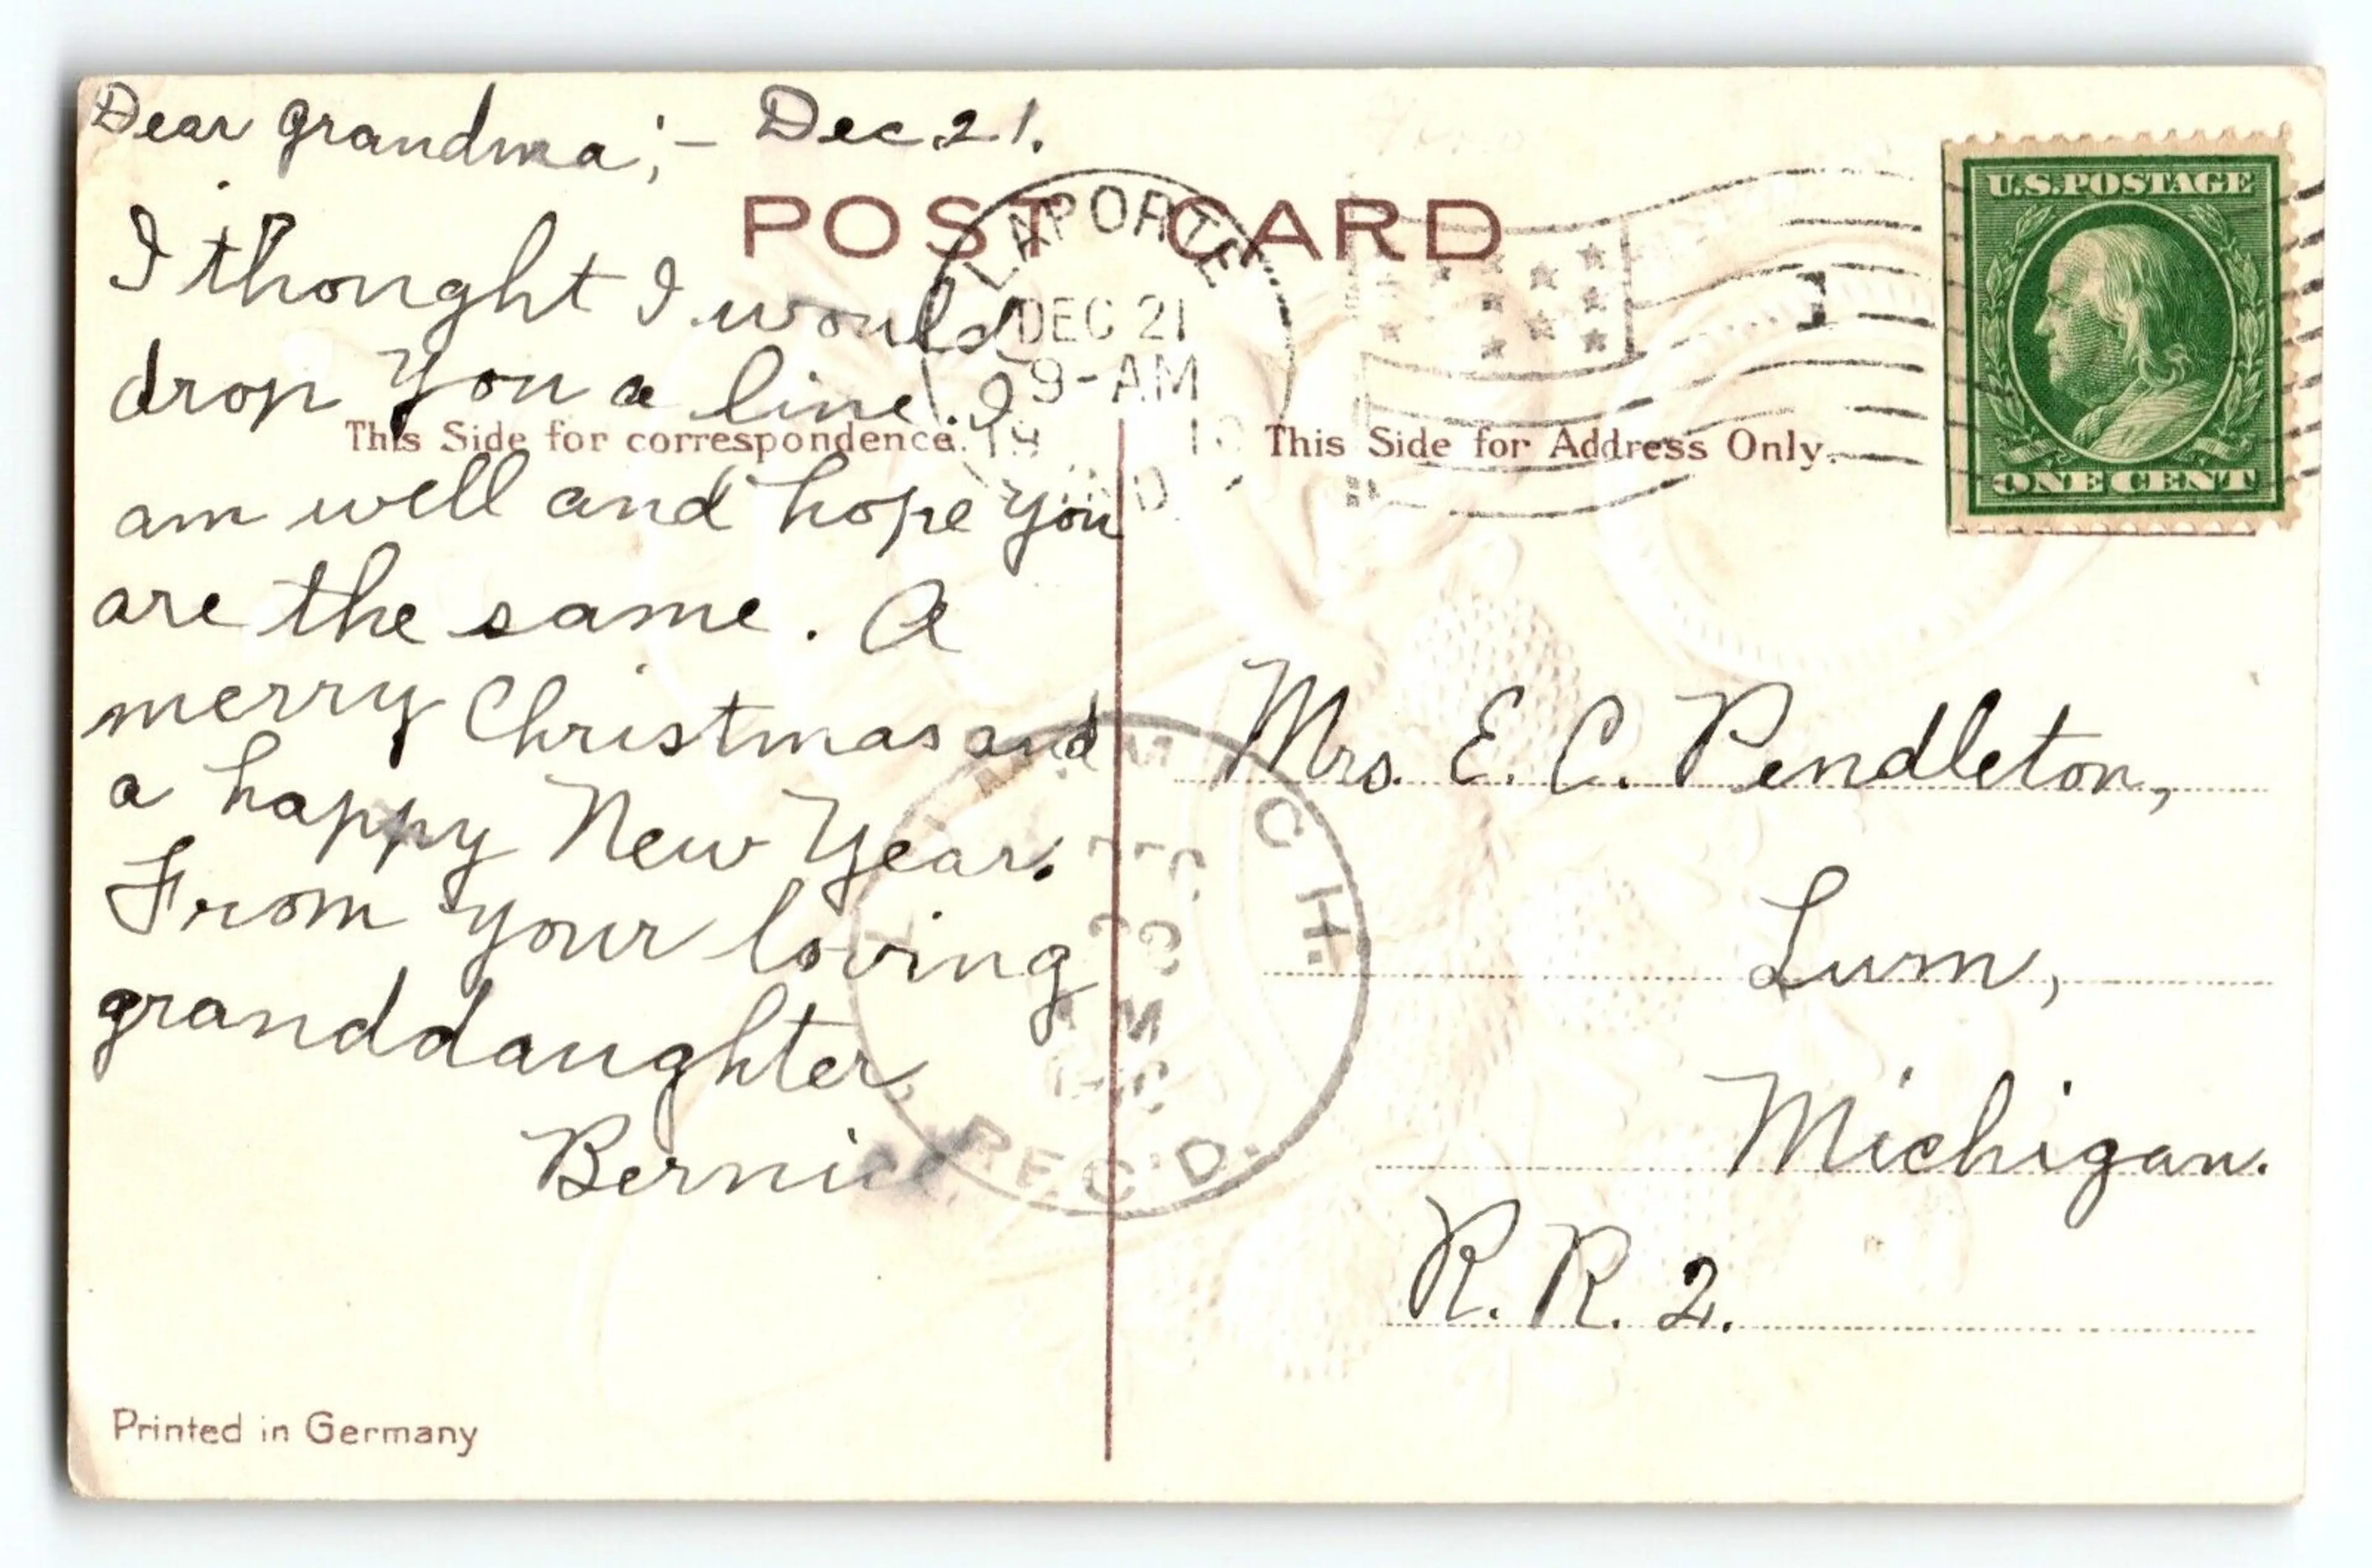 Dear Grandma;- Dec. 21.
I thought I would
drop you a line. I
am well and hope you
are the same. A
merry Christmas and
a happy New Year.
From your loving
granddaughter,
Bernice
POST CARD
This Side for correspondence.
This Side for Address Only.
LAPORTE
DEC 21
9-AM
1
U.S.POSTAGE
ONE CENT
Mrs. E. C. Pendleton,
Lum,
Michigan.
R. R. 2.
MICH.
REC'D.
Printed in Germany